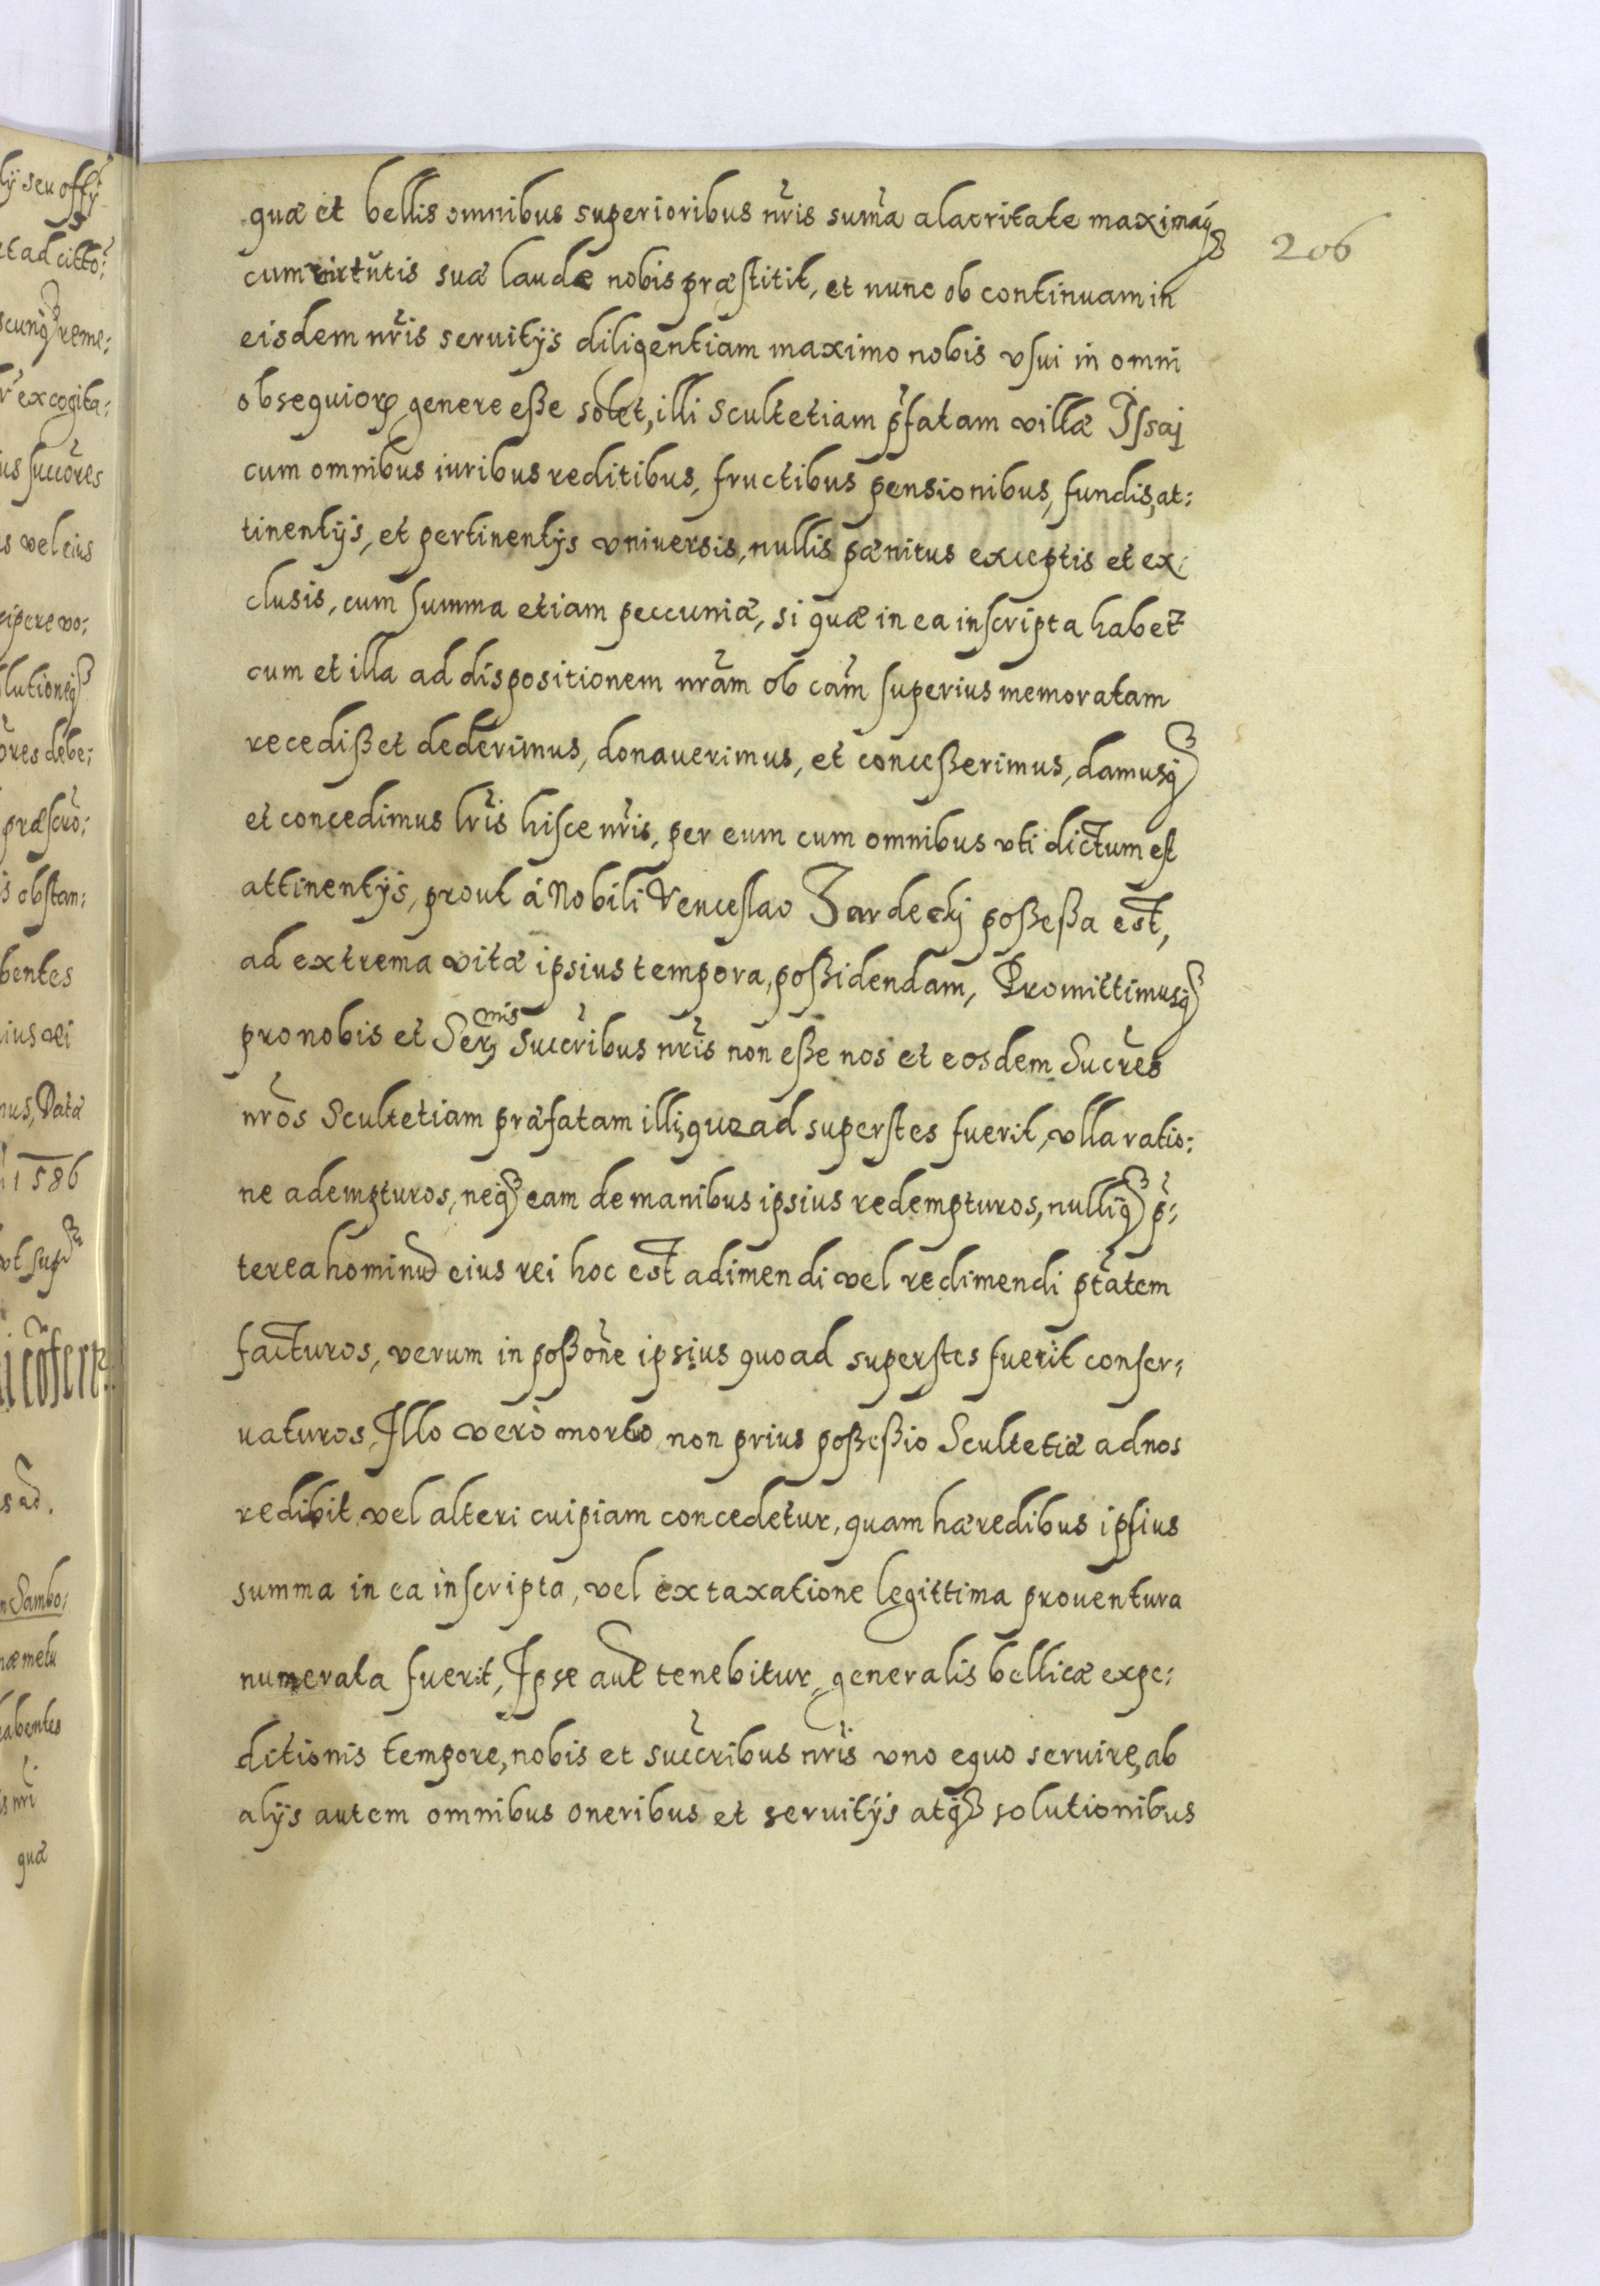 206
quæ et bellis omnibus superioribus nr̃is sum̃a alacritate maximaq̃ʒ
cum virtutis suæ laude nobis præstitit, et nunc ob continuam in
eisdem nr̃is seruitijs diligentiam maximo nobis vsui in omni
obsequioꝝ genere eße solet, illi Scultetiam p̃fatam villæ Issaj
cum omnibus iuribus reditibus, fructibus pensionibus, fundis, at:
tinentijs, et pertinentijs vniuersis, nullis pænitus exceptis et ex:
clusis, cum summa etiam peccuniæ, si quæ in ea inscripta habet̃
cum et illa ad dispositionem nr̃am ob cãm superius memoratam
recedißet dederimus, donauerimus, et conceßerimus, damusq̃ʒ
et concedimus lr̃is hisce nr̃is, per eum cum omnibus vti dictum est
attinentijs, prout á Nobili Venceslao Zardeckj poßeßa est,
ad extrema vitæ ipsius tempora, poßidendam, Promittimusq̃ʒ
pro nobis et Serꝫ mis Succr̃ibus nr̃is non eße nos et eosdem Sucr̃es
nr̃os Scultetiam præfatam illi, quoad superstes fuerit, vlla ratio:
ne adempturos, neq̃ʒ eam de manibus ipsius redempturos, nulliq̃ʒ p̃:
terea hominũ eius rei hoc est adimendi vel redimendi pt̃atem
facturos, verum in poßõne ipsius quoad superstes fuerit conser:
uaturos, Illo verò mortuo non prius poßeßio Scultetiæ ad nos
redibit vel alteri cuipiam concedetur, quam hæredibus ipsius
summa in ea inscripta, vel ex taxatione legittima prouentura
numerata fuerit, Ipse aut̃ tenebitur, generalis bellicæ expe:
ditionis tempore, nobis et succr̃ibus nr̃is vno equo seruire, ab
alijs autem omnibus oneribus et seruitijs atq̃ʒ solutionibus